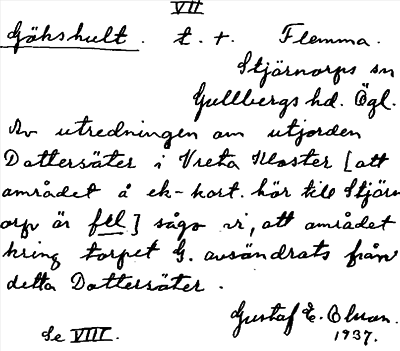 VII
Gökshult. t. +. Flemma.
Stjärnorps sn
Gullbergs hd. Ögl.
Av utredningen om utjorden
Dottersäter i Vreta Kloster [att
området å ek-kort. hör till Stjärn
orp är fel] sågo vi, att området
kring torpet G. avsöndrats från
detta Dottersäter.
Gustaf E. Olson.
Se VIII. 1937.